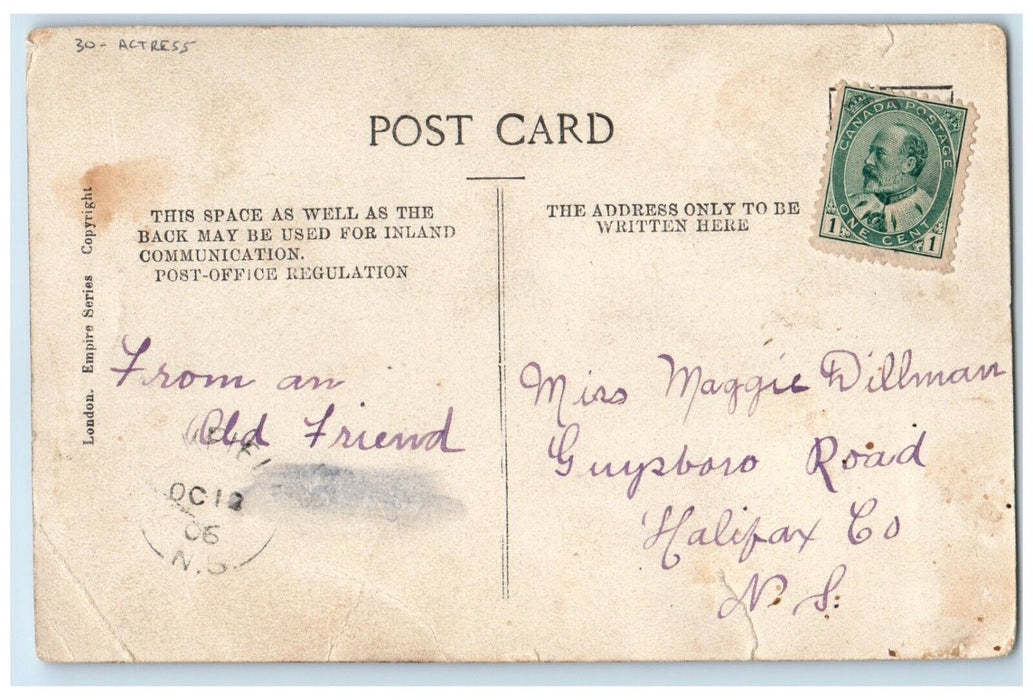 30- ACTRESS
POST CARD
CANADA POSTAGE
1 ONE CENT 1
London. Empire Series Copyright
THIS SPACE AS WELL AS THE
BACK MAY BE USED FOR INLAND
COMMUNICATION.
POST-OFFICE REGULATION
THE ADDRESS ONLY TO BE
WRITTEN HERE
From an
Old Friend
OC 12
06
N.S.
Miss Maggie Dillman
Guysboro Road
Halifax Co
N. S.